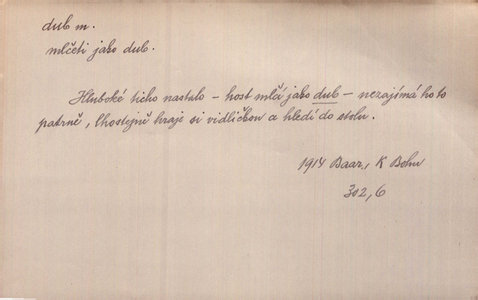 dub m.
mlčeti jako dub.
Hluboké ticho nastalo – host mlčí jako dub – nezajímá ho to
patrně, lhostejně hraje si vidličkou a hledí do stolu.
1914 Baar, K Bohu
302,6